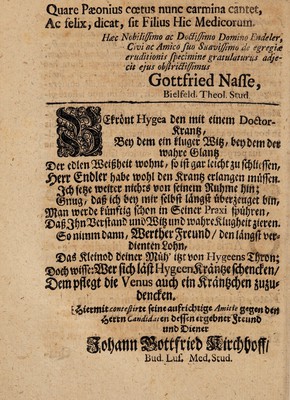 Quare Pæonius cœtus nunc carmina cantet,
Ac felix, dicat, sit Filius Hic Medicorum.
Hæc Nobilissimo ac Doctissimo Domino Endeler,
Civi ac Amico suo Suavissimo de egregiæ
eruditionis specimine gratulaturus adje-
cit ejus obstrictissimus
Gottfried Nasse,
Bielfeld. Theol. Stud.
BEkrönt Hygea den mit einem Doctor-
Krantz,
Bey dem ein kluger Witz, bey dem der
wahre Glantz
Der edlen Weißheit wohnt, so ist gar leicht zu schliessen,
Herr Endler habe wohl den Krantz erlangen müssen.
Ich setze weiter nichts von seinem Ruhme hin;
Gnug, daß ich bey mir selbst längst überzeuget bin,
Man werde künftig schon in Seiner Praxi spühren,
Daß Ihn Verstand und Witz und wahre Klugheit zieren.
So nimm dann, Werther Freund/ den längst ver-
dienten Lohn,
Das Kleinod deiner Müh' itzt von Hygeens Thron;
Doch wisse: Wer sich läst Hygeen Kräntze schencken/
Dem pflegt die Venus auch ein Kräntzchen zuzu-
dencken.
Hiermit contestirte seine aufrichtige Amitie gegen den
Herrn Candidaten dessen ergebner Freund
und Diener
Johann Gottfried Kirchhoff/
Bud. Lus. Med. Stud.